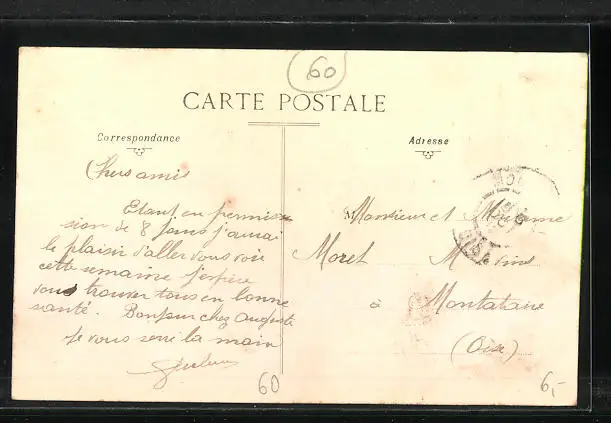 60
CARTE POSTALE
Correspondance
Adresse
Chers amis
Etant en permis
sion de 8 jours j'aurai
le plaisir d'aller vous voir
cette semaine j'espère
vous trouver tous en bonne
santé. Bonjour chez Auguste
Je vous serre la main
Monsieur et Madame
Moret
à Montataire
(Oise)
60
6,-